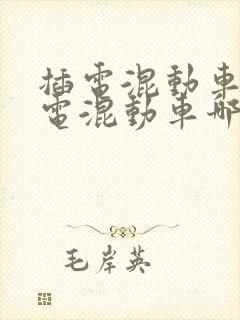 插電混動車
電混動車哪
毛岸英